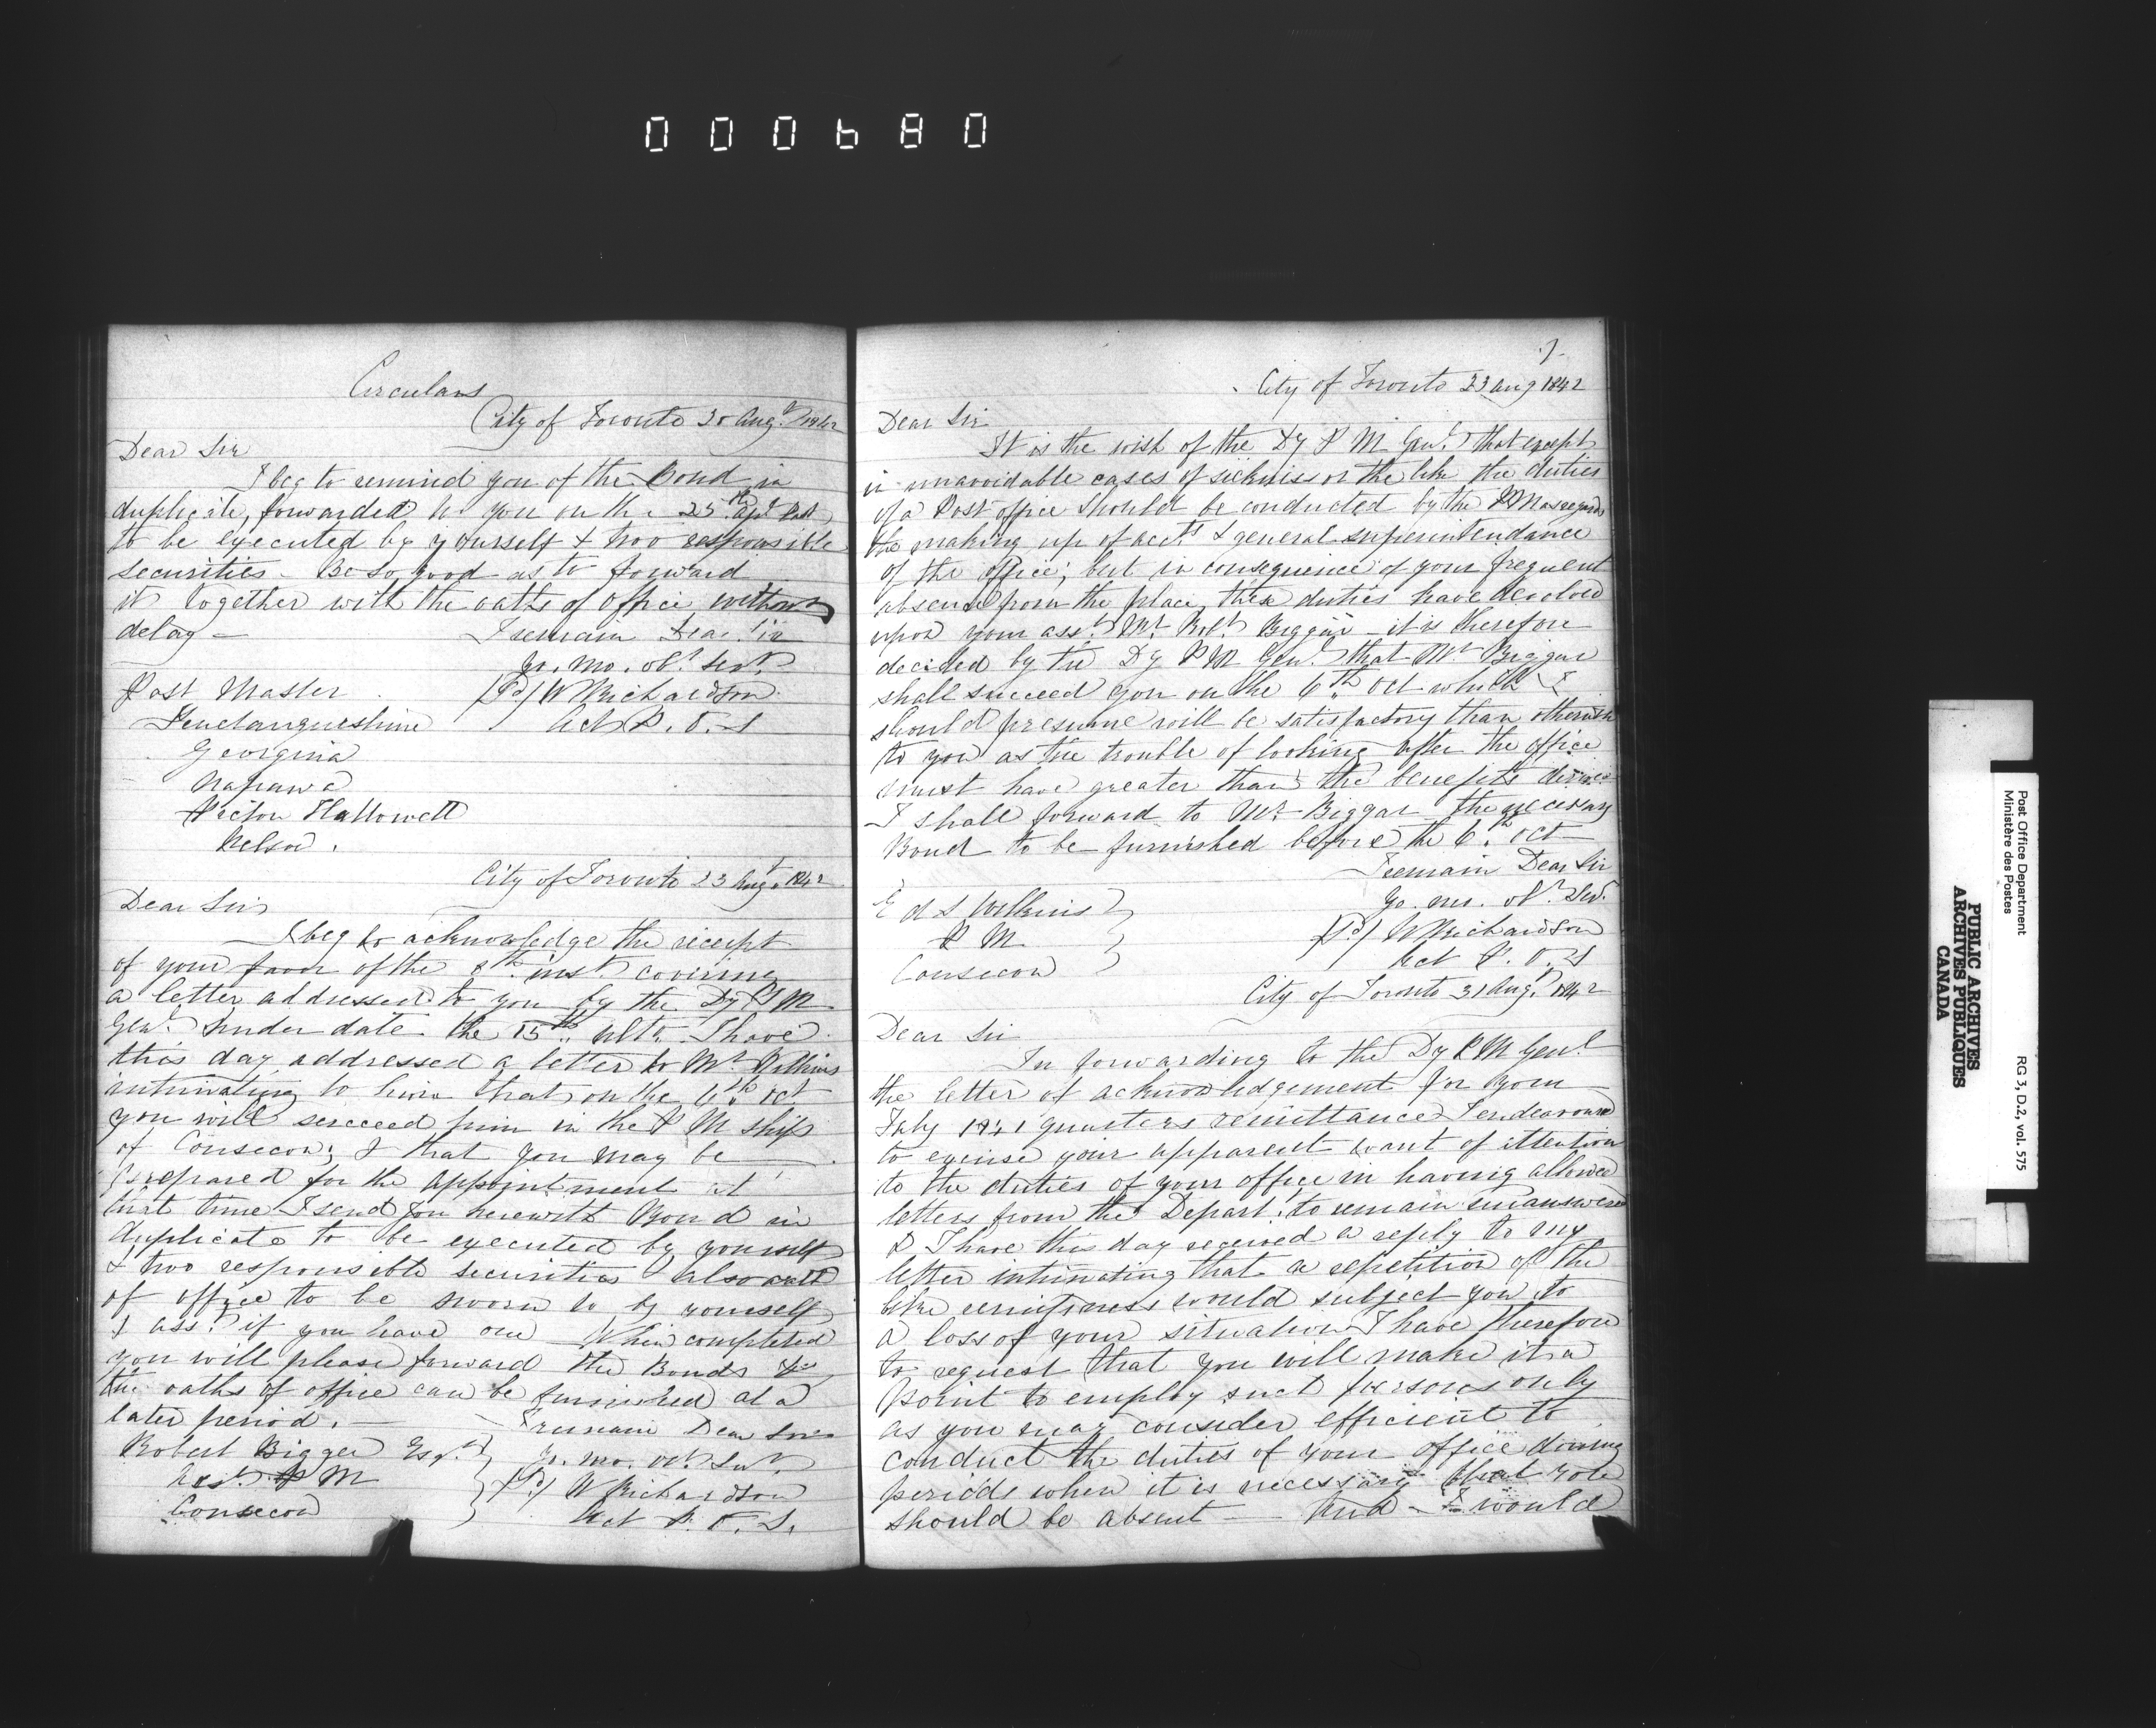 000680
Circulars
City of Toronto Augt 1842
Dear Sir
I beg to remind you of the Bond in
duplicate, forwarded to you on the 25th apl last
to be executed by yourself & two responsible
securities. Be so good as to forward
it together with the oaths of office without
delay —
I remain Dear Sir
Yr. mo. obt. Sert.
Post Master
(Sd) W Richardson
Penetanguishine
Act P. O. S
Georgina
Napanee
Picton Hallowell
Nelson.
City of Toronto 23 Augt 1842
Dear Sir
I beg to acknowledge the receipt
of your favor of the 8th inst. covering
a letter addressed to you by the Dy P M
Genl. under date the 15th ulto. I have
this day addressed a letter to Mr Wilkins
intimating to him that on the 6th Oct
you will succeed him in the P M ship
of Consecon; & that you may be
prepared for the appointment at
that time I send you herewith Bond in
duplicate to be executed by yourself
& two responsible securities also oath
of office to be sworn to by yourself
& asst. if you have one When completed
you will please forward the Bonds
the oaths of office can be furnished at a
later period. —
I remain Dear Sir
Robert Bigger Esqr.
Yr. mo. obt. Sert.
Asst. P M
(Sd) W Richardson
Consecon
Act P. O. S.
7
City of Toronto 23 Aug 1842
Dear Sir
It is the wish of the Dy P M Genl. that except
in unavoidable cases of sickness or the like the duties
of a Post office should be conducted by the P M as regards
the making up of accts & general superintendance
of the office; but in consequence of your frequent
absence from the place, these duties have devolved
upon your asst. Mr Robt. Biggar — it is therefore
decided by the Dy P M Genl. that Mr Biggar
shall succeed you on the 6th Oct which I
should presume will be satisfactory than otherwise
to you as the trouble of looking after the office
must have greater than the benefits derived
I shall forward to Mr Biggar the necessary
Bond to be furnished before the 6th Oct
I remain Dear Sir
Yr. mo. obt. Sert.
Ed S Wilkins
P M
(Sd) W Richardson
Consecon
Act P. O. S
City of Toronto 31 Augt. 1842
Dear Sir
In forwarding to the Dy P M Genl
the letter of acknowledgement for your
July 1841 quarters remittance I endeavoured
to excuse your apparent want of attention
to the duties of your office in having allowed
letters from the Depart. to remain unanswered
& I have this day received a reply to my
letter intimating that a repetition of the
like remissness would subject you to
a loss of your situation I have therefore
to request that you will make it a
point to employ such persons only
as you may consider efficient to
conduct the duties of your office during
periods when it is necessary that you
should be absent — And I would
Post Office Department
Ministère des Postes
RG 3, D.2, vol. 575
PUBLIC ARCHIVES
ARCHIVES PUBLIQUES
CANADA